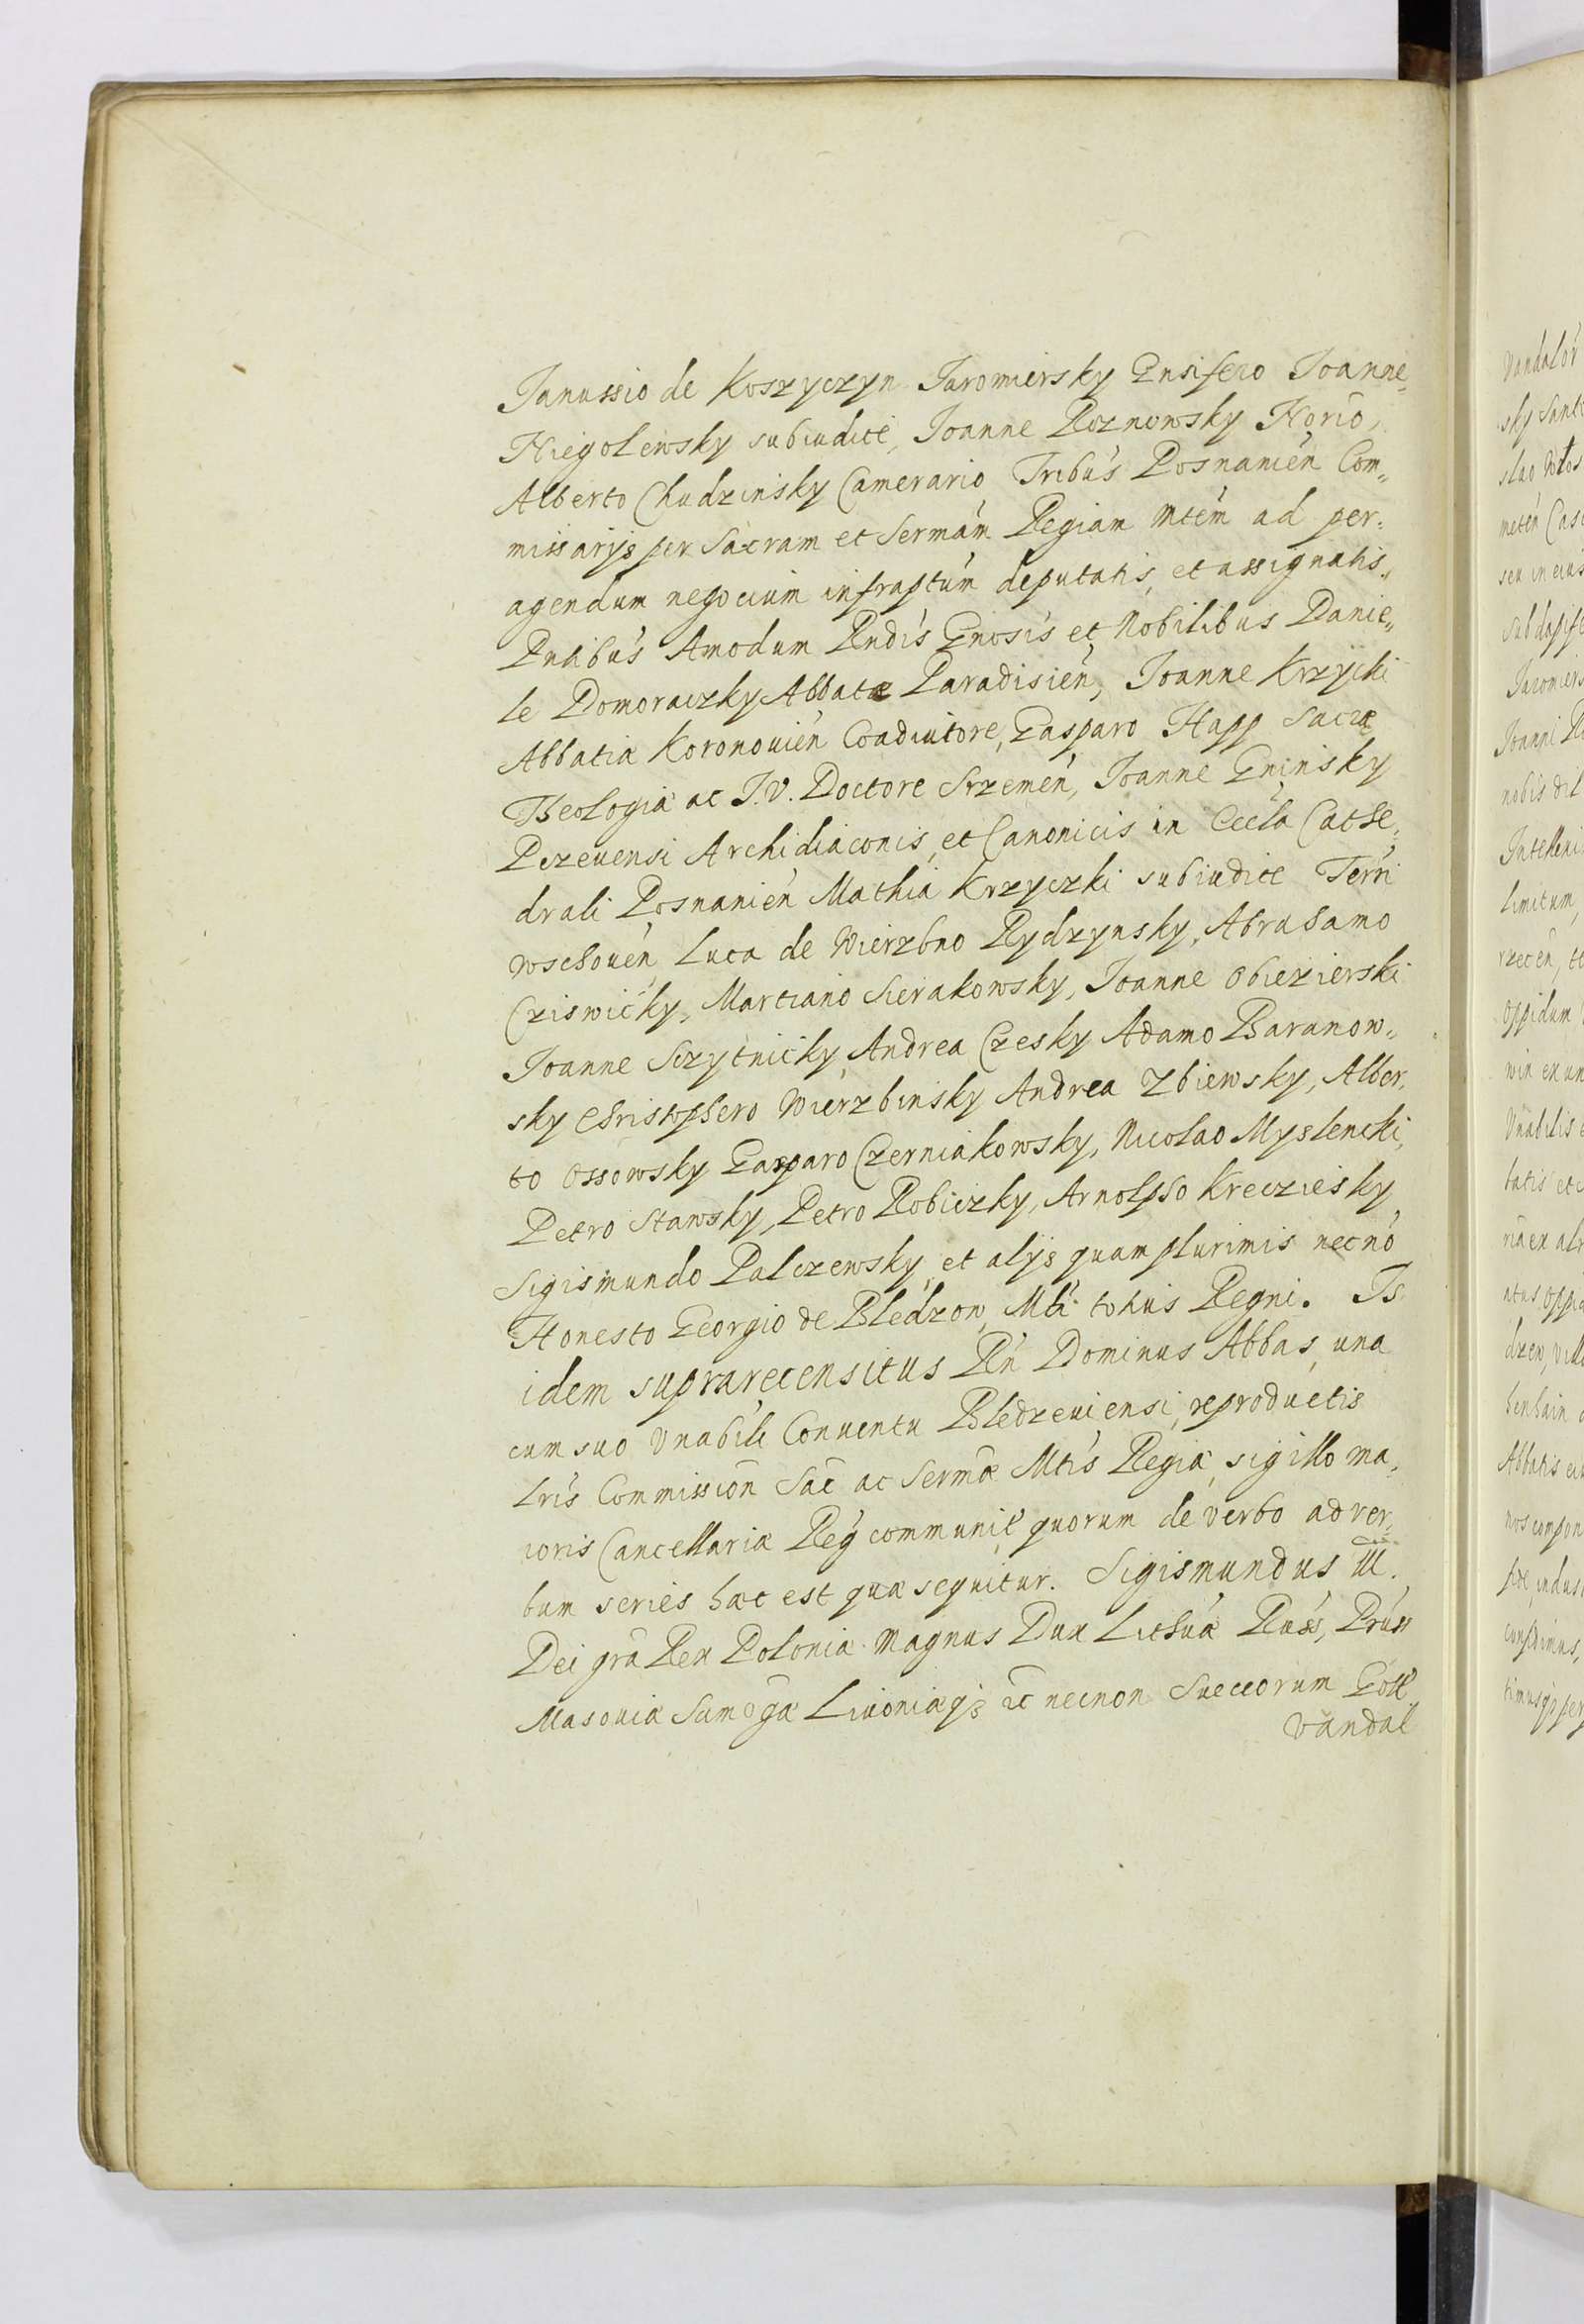 Janussio de Koszyczyn Jaromiersky Ensifero Joanne=
Niegolewsky subiudice, Joanne Roznowsky Norio,
Alberto Chudzinsky Camerario Tribus Posnanien Com„
missarijs per Sacram et Sermam Regiam Mtem ad per=
agendum negocium infraptum deputatis, et assignatis„
Pntibus Amodum Rndis Gnosis et Nobilibus Danie„
le Domoraczky Abbate Paradisien, Joanne Krzycki
Abbatiæ Koronouien Coadiutore, Gasparo Happ Sacræ
Theologiæ ac J.V. Doctore Srzemen, Joanne Gninsky
Pczeuensi Archidiaconis, et Canonicis in Eccla Cathe„
drali Posnanien Mathia Krzyczki subiudice Terri
Wschouen, Luca de Wierzbno Rydzynsky, Abrahamo
Cziswicky, Marciano Sierakowsky, Joanne Obiezierski
Joanne Sczytnicky, Andrea Czesky Adamo Baranow„
sky Christophero Wierzbinsky Andrea Zbiewsky, Alber„
to Ossowsky Gasparo Czerniakowsky, Nicolao Myslencki,
Petro Stawsky, Petro Robiczky, Arnolpho Krecziesky,
Sigismundo Palczewsky, et alijs quamplurimis necno
Honesto Georgio de Bledzow, Mli totius Regni. Is
idem suprarecensitus Rn Dominus Abbas, una
cum suo Vnabili Conuentu Bledzeuiensi, reproductis
Lris Commission Sac ac Sermæ Mtis Regiæ, sigillo ma„
ioris Cancellariæ Reg communit quorum de verbo ad ver„
bum series hæc est quæ sequitur. Sigismundus III.
Dei gra Rex Poloniæ Magnus Dux Lithuæ Russ, Pruss
Masouiæ Samogæ Liuoniæq3 &c necnon Sueccorum Gott
Vandal
Vandalor
sky Sant
slao Wlos
meten Cas
seu in eius
Subdapife
Jaromiers
Joanni Ro
nobis dil
Intellexi
limitum,
rzecen, to
oppidum
win ex un
Vnabilis e
batis et c
ria ex al
atus, oppi
drew, vill
henhain
Abbatis ei
nos compon
confidimus,